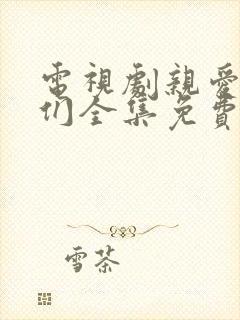 電視劇親愛
们全集免費
雪茶